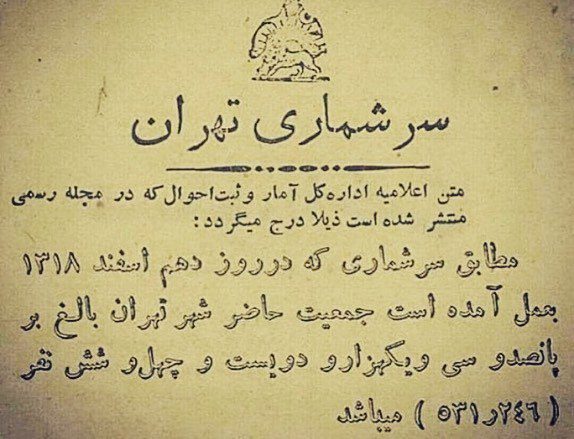 سرشماری تهران
متن اعلامیه اداره کل آمار و ثبت احوال که در مجله رسمی
منتشر شده است ذیلا درج میگردد:
مطابق سرشماری که در روز دهم اسفند ۱۳۱۸
بعمل آمده است جمعیت حاضر شهر تهران بالغ بر
پانصدو سی ویکهزارو دویست و چهل‌و شش نفر
(۵۳۱ر۲٤٦) میباشد